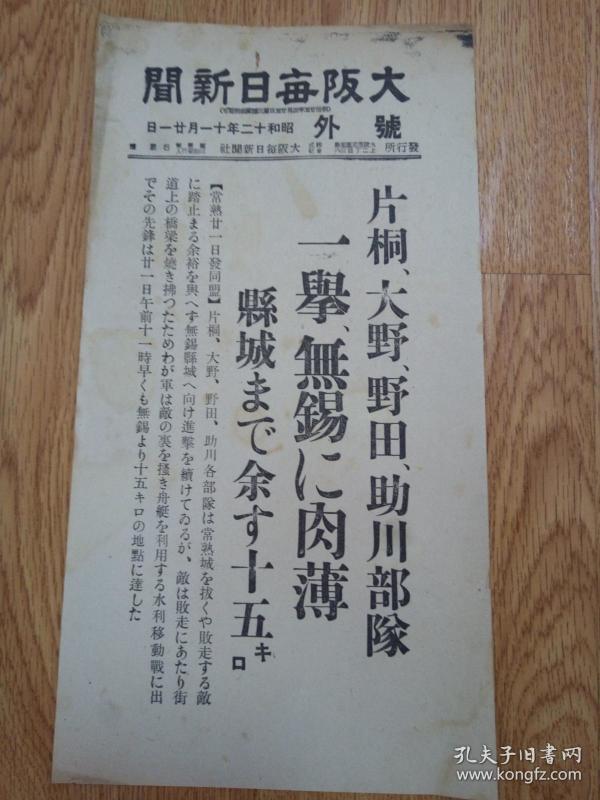 大阪毎日新聞
號外
昭和十二年十一月廿一日
發行所
大阪毎日新聞社
片桐、大野、野田、助川部隊
一擧、無錫に肉薄
縣城まで余す十五キロ
【常熟廿一日發同盟】片桐、大野、野田、助川各部隊は常熟城を拔くや敗走する敵
に踏止まる余裕を與へす無錫縣城へ向け進擊を續けてゐるが、敵は敗走にあたり街
道上の橋梁を燒き拂つたためわが軍は敵の裏を搔き舟艇を利用する水利移動戰に出
でその先鋒は廿一日午前十一時早くも無錫より十五キロの地點に達した
孔夫子旧书网
www.kongfz.com